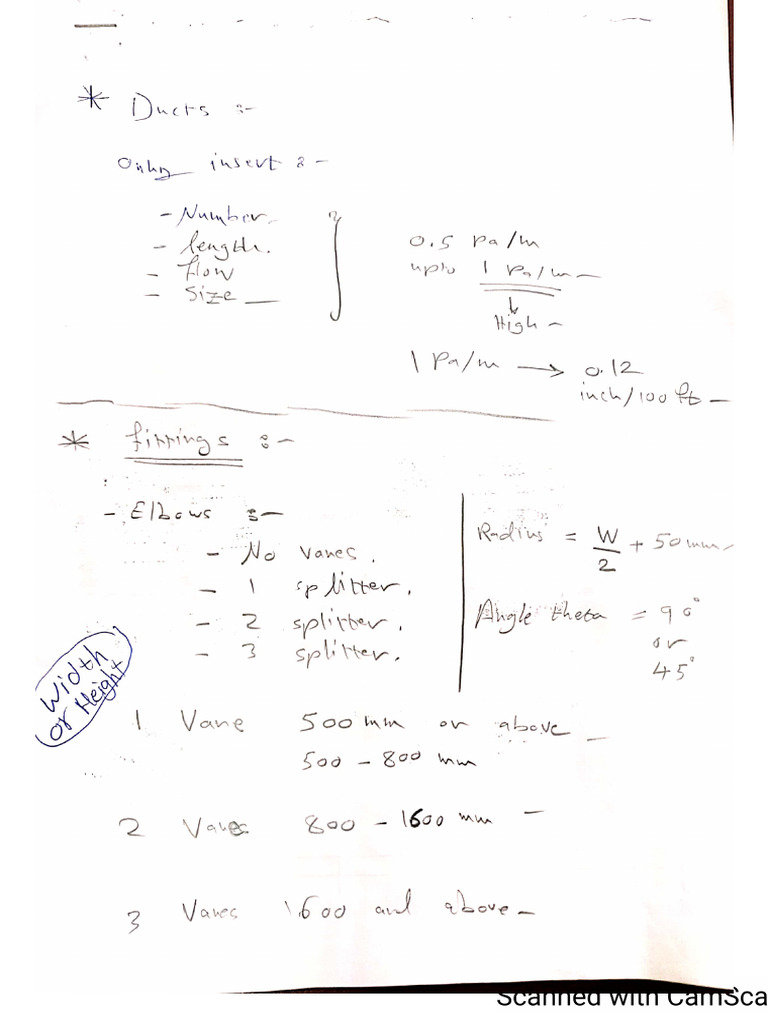 * Ducts :-
Only insert :-
- Number.
- length.
- flow
- Size
0.5 Pa/m
upto 1 Pa/m
↓
High
1 Pa/m → 0.12
inch/100 ft
* fittings :-
- Elbows :-
- No vanes.
- 1 splitter.
- 2 splitter.
- 3 splitter.
Radius = W/2 + 50 mm
Angle theta = 90°
or
45°
Width
or Height
1 Vane 500 mm or above
500 - 800 mm
2 Vanes 800 - 1600 mm
3 Vanes 1600 and above
Scanned with CamSca